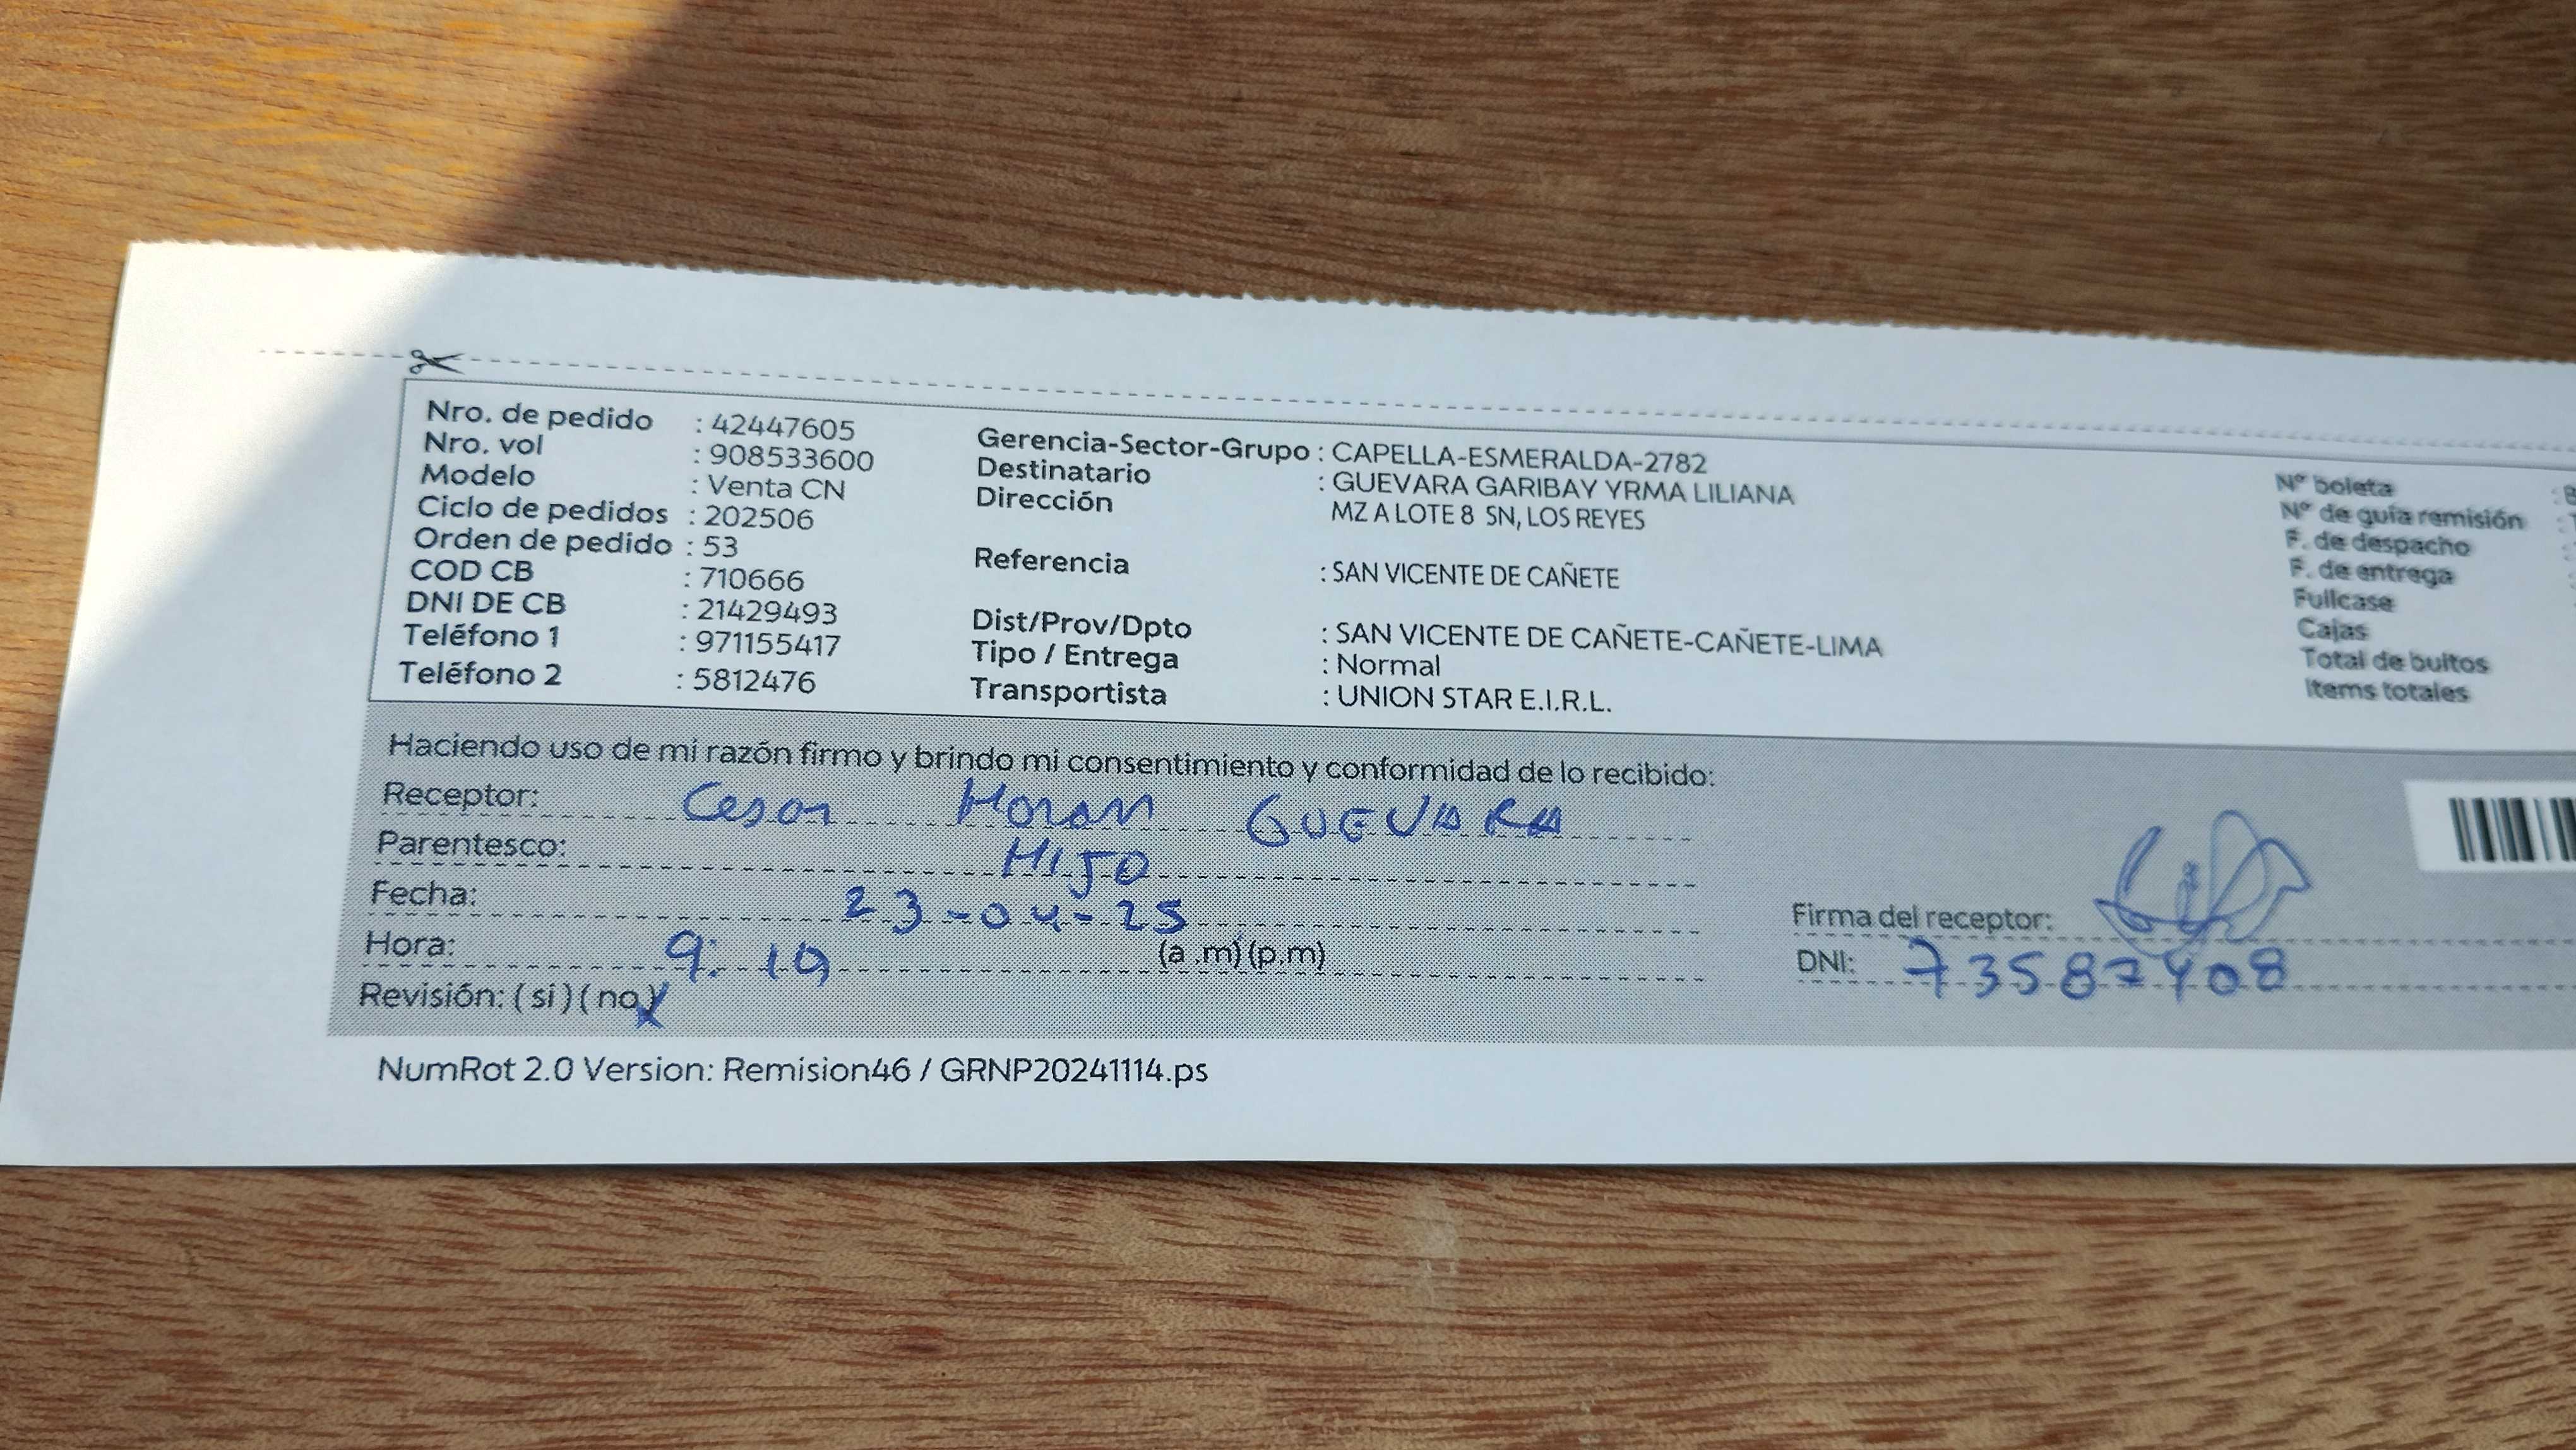 Nro. de pedido : 42447605
Nro. vol : 908533600
Modelo : Venta CN
Ciclo de pedidos : 202506
Orden de pedido : 53
COD CB : 710666
DNI DE CB : 21429493
Teléfono 1 : 971155417
Teléfono 2 : 5812476
Gerencia-Sector-Grupo : CAPELLA-ESMERALDA-2782
Destinatario : GUEVARA GARIBAY YRMA LILIANA
Dirección MZ A LOTE 8 SN, LOS REYES
Referencia : SAN VICENTE DE CAÑETE
Dist/Prov/Dpto : SAN VICENTE DE CAÑETE-CAÑETE-LIMA
Tipo / Entrega : Normal
Transportista : UNION STAR E.I.R.L.
N° boleta :
N° de guía remisión :
F. de despacho
F. de entrega
Fullcase
Cajas
Total de bultos
Items totales
Haciendo uso de mi razón firmo y brindo mi consentimiento y conformidad de lo recibido:
Receptor: Cesar Moran GUEVARA
Parentesco: HIJO
Fecha: 23-04-25
Hora: 9:19 (a .m)(p.m)
Revisión: (si)(no)
Firma del receptor:
DNI: 73587408
NumRot 2.0 Version: Remision46 / GRNP20241114.ps